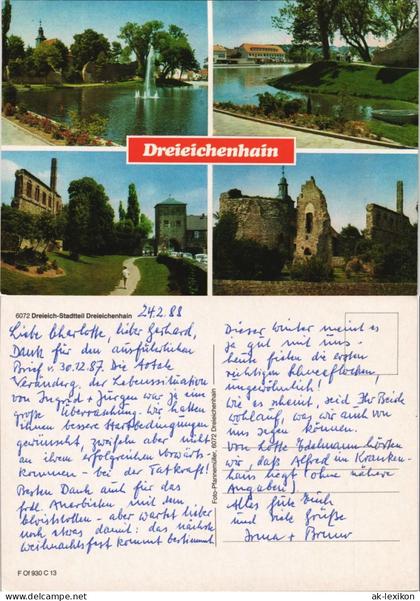 Dreieichenhain
6072 Dreieich-Stadtteil Dreieichenhain
24.2.88
Liebe Charlotte, lieber Gerhard,
Dank für den ausführlichen
Brief v. 30.12.87. Die totale
Veränderg. der Lebenssituation
von Ingrid + Jürgen war ja eine
große Überraschung. Wir hätten
ihnen bessere Startbedingungen
gewünscht, zweifeln aber nicht
an ihrem erfolgreichen Vorwärts-
kommen – bei der Tatkraft!
Besten Dank auch für das
frdl. Anerbieten mit dem
– aber wartet lieber
noch etwas damit: das nächste
Weihnachtsfest kommt bestimmt
F Of 930 C 13
Foto-Pfannemüller, 6072 Dreieichenhain
Dieser Winter meint es
ja gut mit uns –
heute fielen die ersten
richtigen Schneeflocken,
ungewöhnlich!
Wie es scheint, seid Ihr Beide
wohlauf, was wir auch von
uns sagen können.
Von Lotte Edelmann hörten
wir, daß Alfred im Kranken-
haus liegt (ohne nähere
Angaben)
Alles Gute Euch
und viele Grüße
Irma + Bruno
© ak-lexikon.com